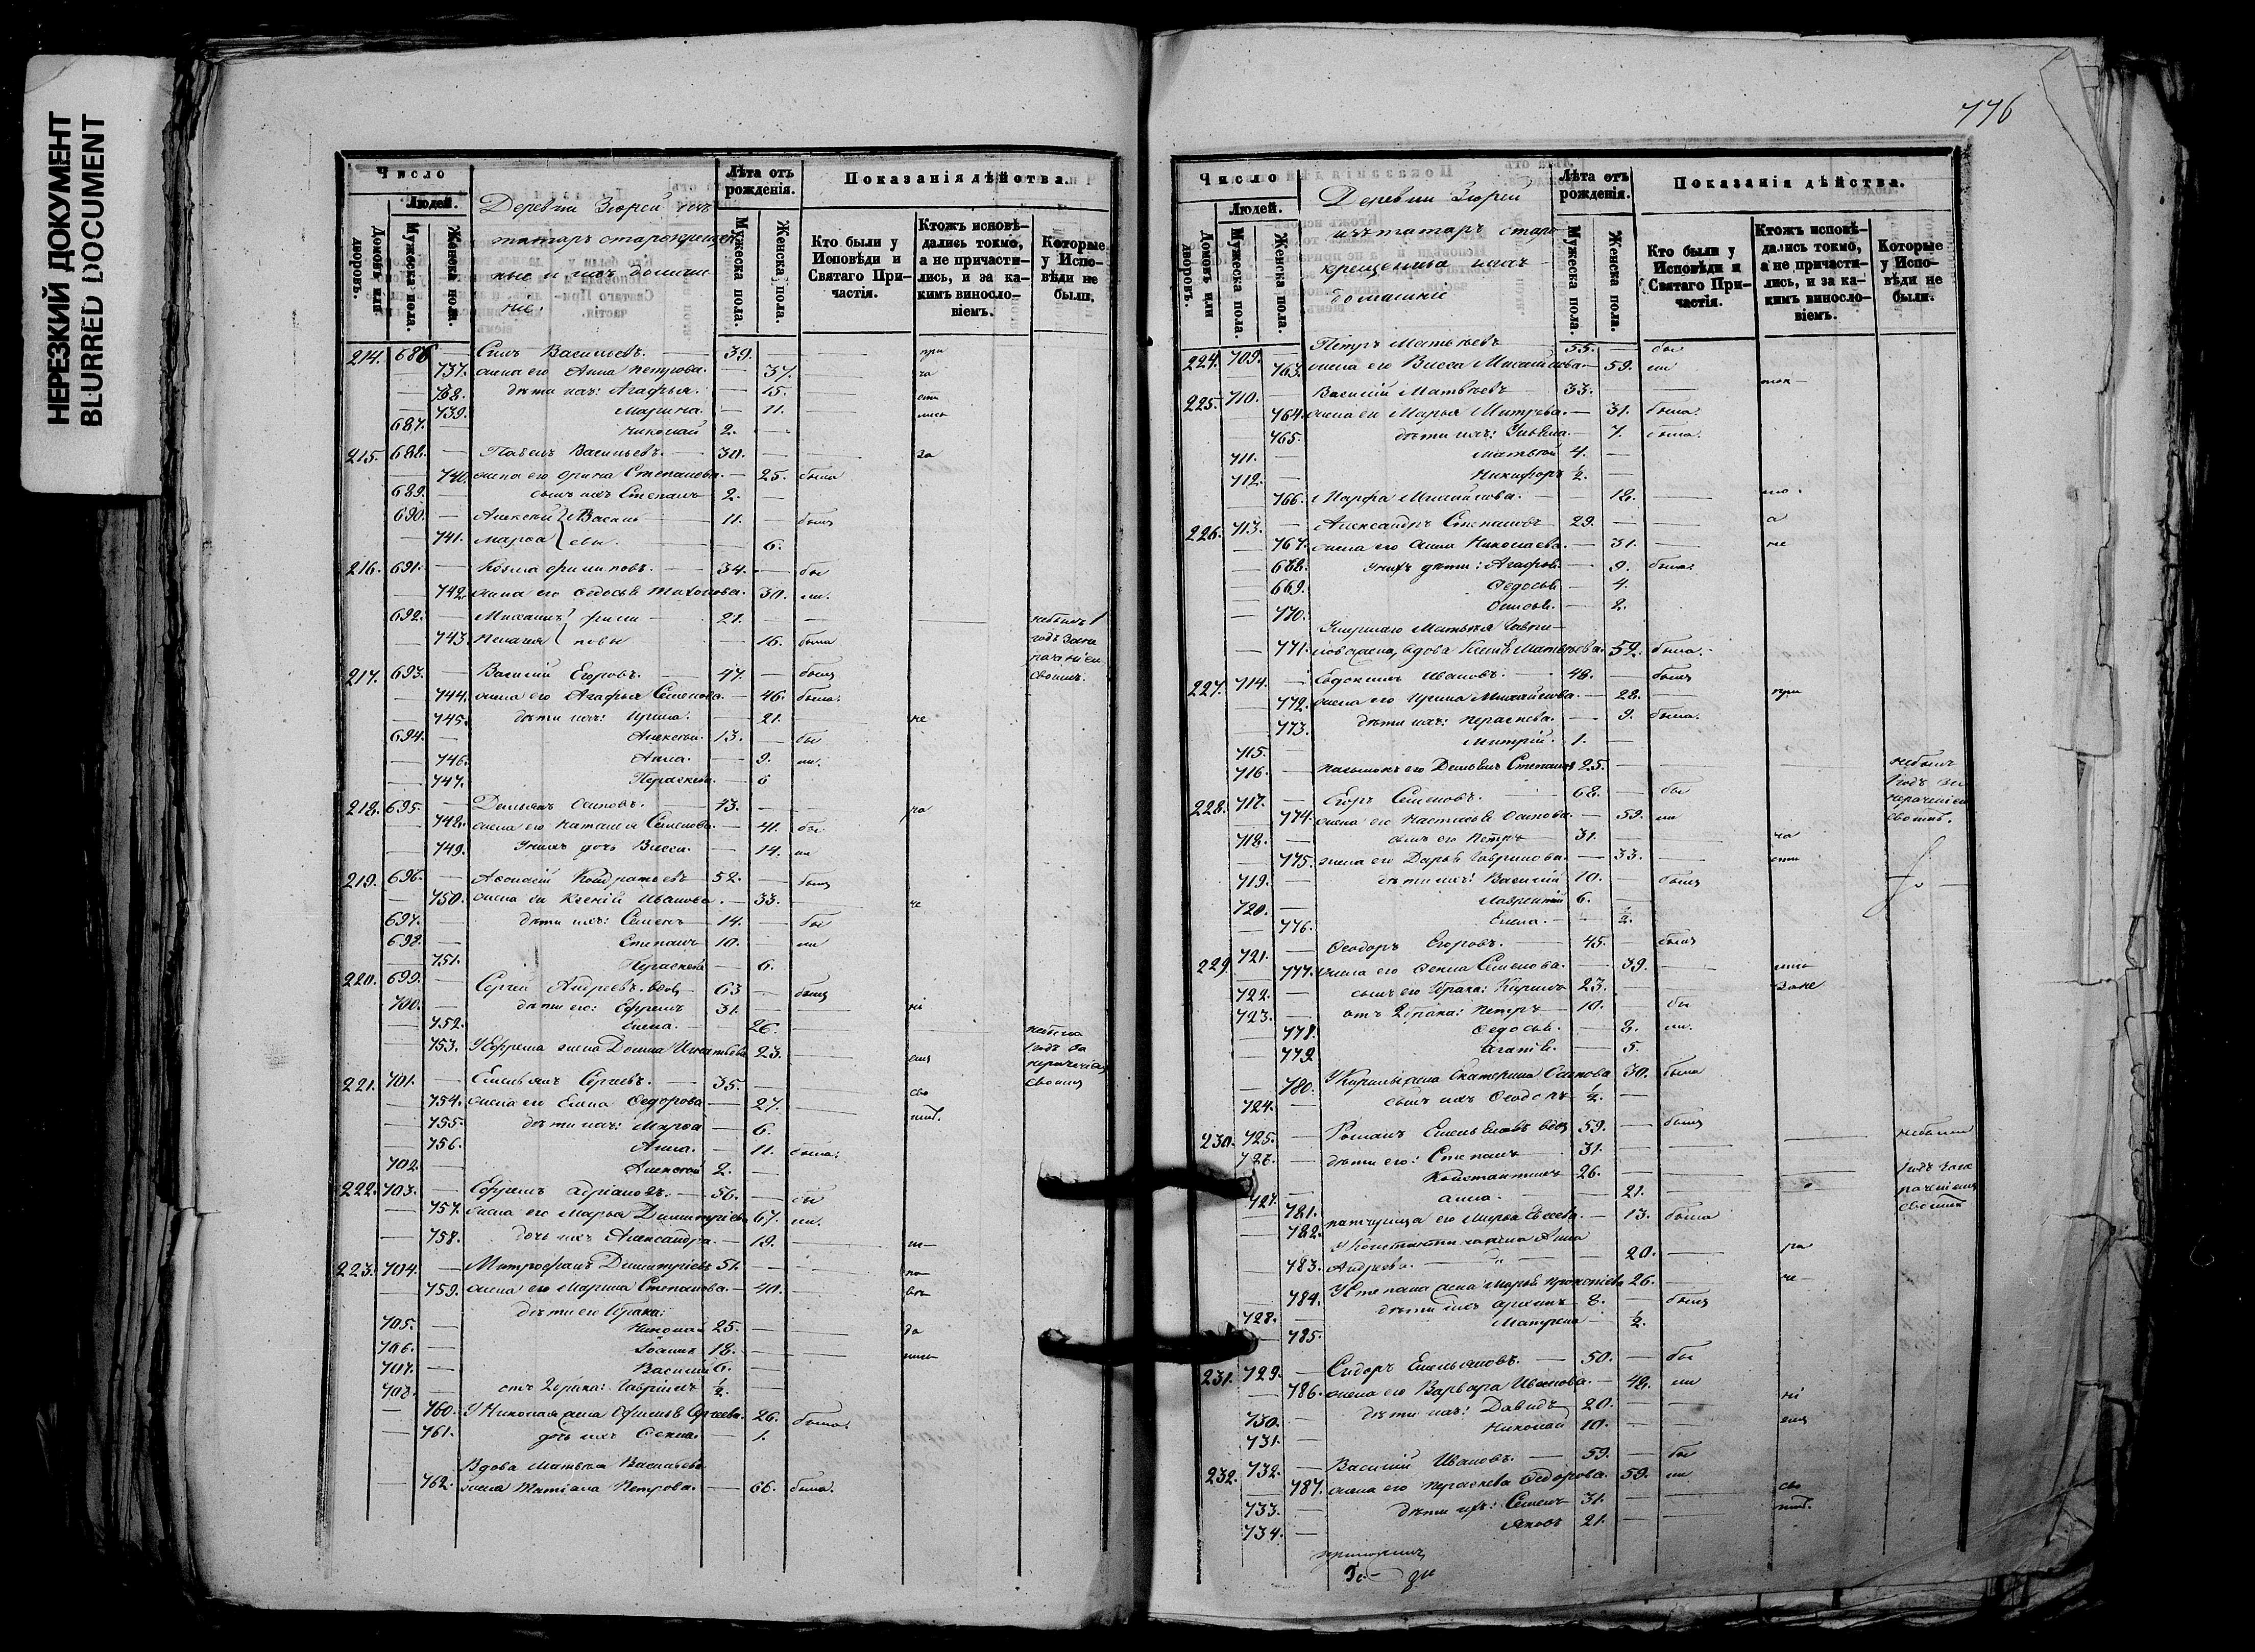 НЕРЕЗКИЙ ДОКУМЕНТ
BLURRED DOCUMENT
Число
Людей.
Домовъ или дворовъ.
Мужеска пола.
Женска пола.
Деревни Зюрей изъ
татаръ старокрещен
ные и ихъ домаш
ніе.
Лѣта отъ рожденія.
Мужеска пола.
Женска пола.
Показанія дѣйства.
Кто были у Исповѣди и Святаго Причастія.
Ктожъ исповѣдались токмо, а не причастились, и за какимъ винословіемъ.
Которые у Исповѣди не были.
214. 686 — Васильевъ. 39. — при
737. жена его Анна Петрова. — 37. ча
738. дѣти ихъ: Агафья. — 15. сти
739. Марина. — 11. лись
687. Николай 2. —
215. 688. — Павелъ Васильевъ. 30. — за
740. жена его Степанова. — 25. была
689. — сынъ ихъ Степанъ 2. —
690. — Алексей } Василь 11. — былъ
741. Марѳа } евы. 6.
216. 691. — Козма Филиповъ. — 34. — бы
742. жена его Ѳедосья Тихонова. 30. ли.
692. — Михаилъ } Фили 21. — небылъ 1
743. Пелагия } повы 16. была годъ зане
раченіем
217. 693. — Василий Егоровъ. — 47. — былъ своимъ.
744. жена его Агафья Семенова. — 46. была.
745. дѣти ихъ: Ирина. — 21. не
694. — Алексей. 13. — бы
746. Анна. — 9. ли.
747. Параскева. — 6
218. 695. — Демьянъ Осиповъ. 43. — ра
748. жена его Наталья Семенова. — 41. бы
749. У нихъ дочь Васса. — 14. ли
219. 696. — Аѳонасій Кондратьевъ 52. — былъ
750. жена его Ксенія Иванова. — 33. че
697. — дѣти ихъ: Семенъ 14. — бы
698. — Степанъ 10. — ли
751. Параскева — 6.
220. 699. — Сергей Андреевъ вдов 63 — былъ
700. — дѣти его: Ефремъ 31. — ні
752. Елена. — 26. небыла
753. У Ефрема жена Домна Игнатьева 23. емъ 1 годъ за
нерачением
221. 701. — Емельянъ Сергеевъ. — 35. — сво своимъ
754. жена его Елена Ѳедорова — 27. имъ.
755. дѣти ихъ: Марѳа — 6.
756. Анна. — 11. была.
702. — Алексей 2. —
222. 703. — Ефремъ Адріановъ. — 56. — бы
757. жена его Марья Димитріева 67. ли.
758. дочь ихъ Александра. — 19.
223. 704. — Митрофанъ Димитріевъ 51. — по
759. жена его Марина Степанова. — 40.
дѣти его 1 брака:
705. — Николай 25. —
706. — Іоаннъ 18. —
707. — Василий 6. —
708. — отъ 2 брака: Гавріилъ ½ —
760. У Николая жена Сергеева. 26. была.
761. дочь ихъ — 1.
Вдова Матвея Васильева
762. жена Татіана Петрова. — 66. была.
776
Число
Людей.
Домовъ или дворовъ.
Мужеска пола.
Женска пола.
Деревни Зюрей
изъ татаръ старо
крещенные и ихъ
домашніе
Лѣта отъ рожденія.
Мужеска пола.
Женска пола.
Показанія дѣйства.
Кто были у Исповѣди и Святаго Причастія.
Ктожъ исповѣдались токмо, а не причастились, и за какимъ винословіемъ.
Которые у Исповѣди не были.
224. 709. — Петръ Матвеевъ 55. — бы
763. жена его Васса Михайлова — 59. ли
225. 710. — Василій Матвеевъ — 33. — ток
764. жена его Марья Митрева. — 31. была.
765. дѣти ихъ: — 7. была.
711. — Матвей 4. —
712. — Никифоръ ½ —
766. Марфа Михайлова. — 18. мо.
226. 713. — Александръ Степановъ 29. — а
767. жена его Анна Николаева. — 31. не
668. У нихъ дѣти: Агафья. — 9. была.
669. Ѳедосья — 4.
770. — 2.
Умершаго Матвея Гаври
771. лова жена, вдова Матвеева. 52. была.
227. 714. — Евдокимъ Ивановъ. — 48. — былъ
772. жена его Ирина Михайлова. — 28. при
773. дѣти ихъ: Параскева. — 9. была.
715. — Митрій. 1. —
716. — Степановъ 25. — небылъ
1 годъ за
228. 717. — Егоръ Семеновъ. — 68. — бы нерачением
774. жена его Настасья Осипова. — 59. ли своимъ.
718. — сынъ его Петръ 31. ча
775. жена его Дарья Гаврилова. — 33. сти
719. — дѣти ихъ: Василий 10. — былъ
720. — Лаврентий 6. —
776. Елена. — ½.
229. 721. — Ѳеодоръ Егоровъ. — 45. — былъ
777. жена его Семенова. — 39. лись
722. — сынъ его 1 брака: Кирилъ 23. — зане
723. — отъ 2 брака: Петръ 10. — бы
778. Ѳедосья. — 8. ли.
779 Агапія. — 5.
780. У Кирилы жена Екатерина Осипова 30. была
724. — сынъ ихъ Ѳеодоръ ½ —
230. 725. — Романъ Емельяновъ вдов 59. — былъ небыли
726. — дѣти его: Степанъ 31. —
727. — Константинъ 26. — 1 годъ зане
781. Анна. — 21. раченіем
782. падчерица его Марья Евсеева. — 13. была своимъ
У Константина жена Анна
783. Андреева. — 20. ра
784. У Степана жена Марья 26. — че
728. — дѣти ихъ 8. — былъ
785. Матрена — ½.
231. 729. — Сидоръ Емельяновъ. — 50. — бы
786. жена его Варвара Иванова. — 48. ли
730. — дѣти ихъ: Давидъ 20. — ні
731. — Николай 10. — емъ
232. 732. — Василий Ивановъ. — 59. — бы
787. жена его Параскева Ѳедорова. 59. ли сво
733. — дѣти ихъ: Семенъ 31. — имъ.
734. — Яковъ 21. —